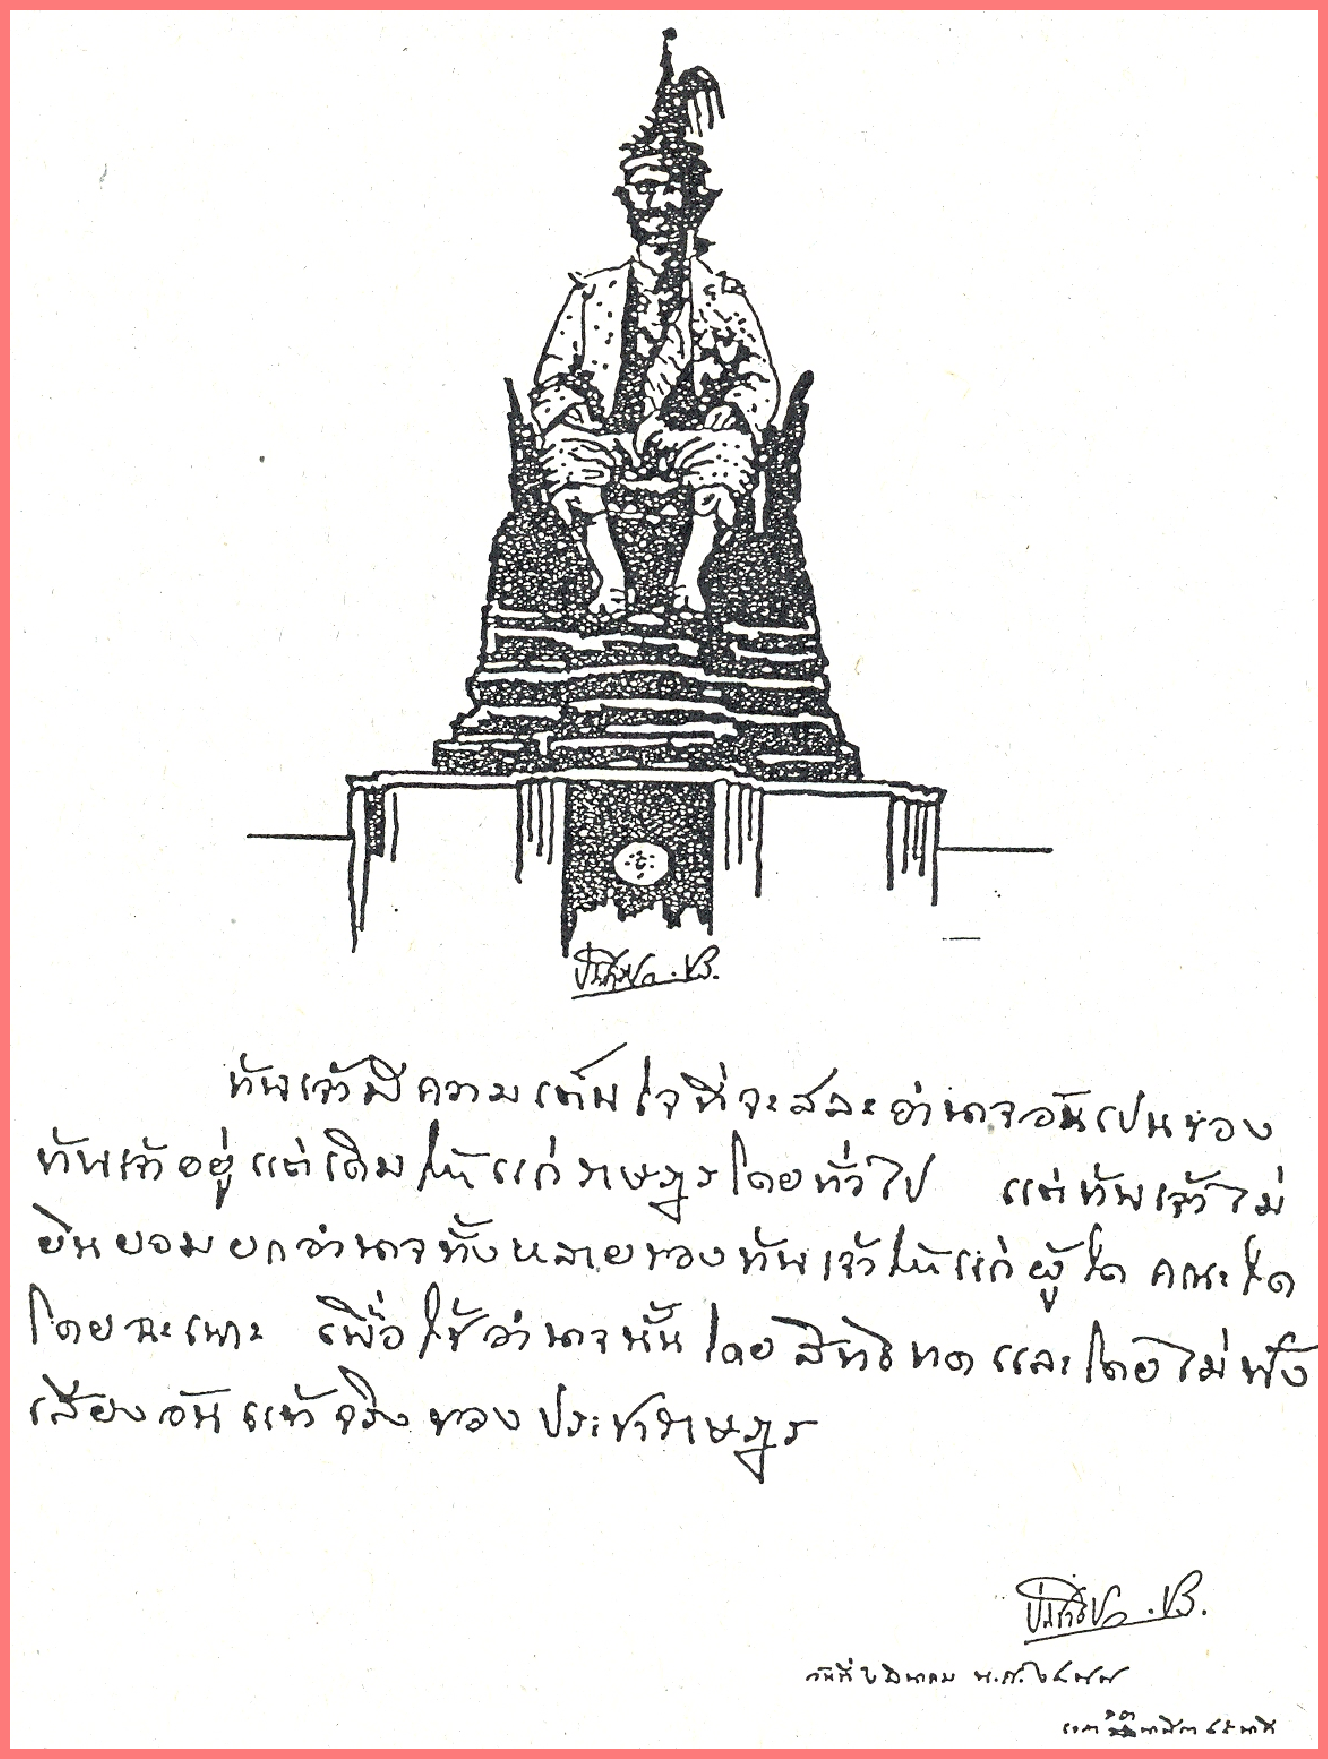 ประชาธิปก. ปร.
ข้าพเจ้ามีความเต็มใจที่จะสละอำนาจอันเปนของ
ข้าพเจ้าอยู่แต่เดิมให้แก่ราษฎรโดยทั่วไป แต่ข้าพเจ้าไม่
ยินยอมยกอำนาจทั้งหลายของข้าพเจ้าให้แก่ผู้ใด คณะใด
โดยฉะเพาะ เพื่อใช้อำนาจนั้นโดยสิทธิขาดและโดยไม่ฟัง
เสียงอันแท้จริงของประชาราษฎร
ประชาธิปก. ปร.
วันที่ ๒ มีนาคม พ.ศ. ๒๔๗๗
๔๕ นาที